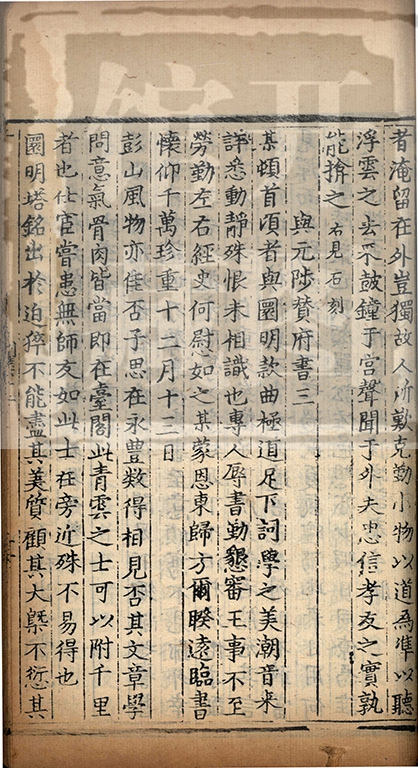 昔淹留在外豈獨故人所歎克勤小物以道為準以聽
浮雲之去來鼓鐘于宮聲聞于外夫忠信孝友之實孰
能揜之右見石刻
與元陟贊府書三
某頓首頃者與圜明款曲極道足下詞學之美潮音来
詳悉動靜殊恨未相識也專人辱書動懇審王事不至
勞勤左右經史何慰如之某蒙恩東歸方爾暌遠臨書
懷仰千萬珍重十二月十三日
彭山風物亦佳否子思在永豊数得相見否其文章學
問意氣骨肉皆當即在臺閣此青雲之士可以附千里
者也仕宦嘗患無師友如此士在旁近殊不易得也
圜明塔銘出於迫猝不能盡其美質顧其大槩不愆其